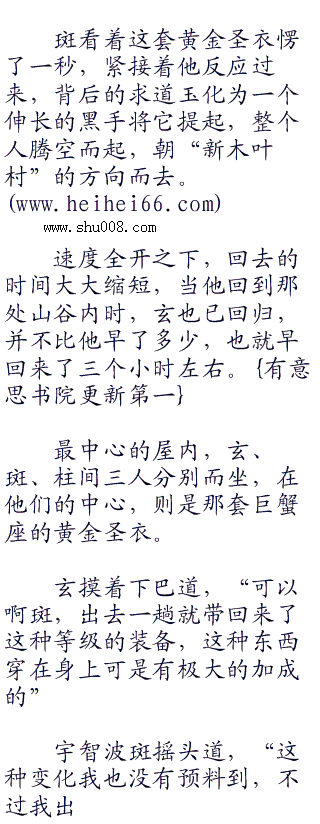 斑看着这套黄金圣衣愣
了一秒，紧接着他反应过
来，背后的求道玉化为一个
伸长的黑手将它提起，整个
人腾空而起，朝“新木叶
村”的方向而去。
(www.heihei66.com)
www.shu008.com
速度全开之下，回去的
时间大大缩短，当他回到那
处山谷内时，玄也已回归，
并不比他早了多少，也就早
回来了三个小时左右。{有意
思书院更新第一}
最中心的屋内，玄、
斑、柱间三人分别而坐，在
他们的中心，则是那套巨蟹
座的黄金圣衣。
玄摸着下巴道，“可以
啊斑，出去一趟就带回来了
这种等级的装备，这种东西
穿在身上可是有极大的加成
的”
宇智波斑摇头道，“这
种变化我也没有预料到，不
过我出